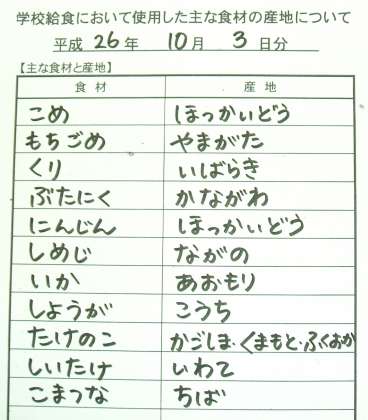 学校給食において使用した主な食材の産地について
平成 26 年 10 月 3 日分
【主な食材と産地】
食材 産地
こめ ほっかいどう
もちごめ やまがた
くり いばらき
ぶたにく かながわ
にんじん ほっかいどう
しめじ ながの
いか あおもり
しょうが こうち
たけのこ かごしま・くまもと・ふくおか
しいたけ いわて
こまつな ちば